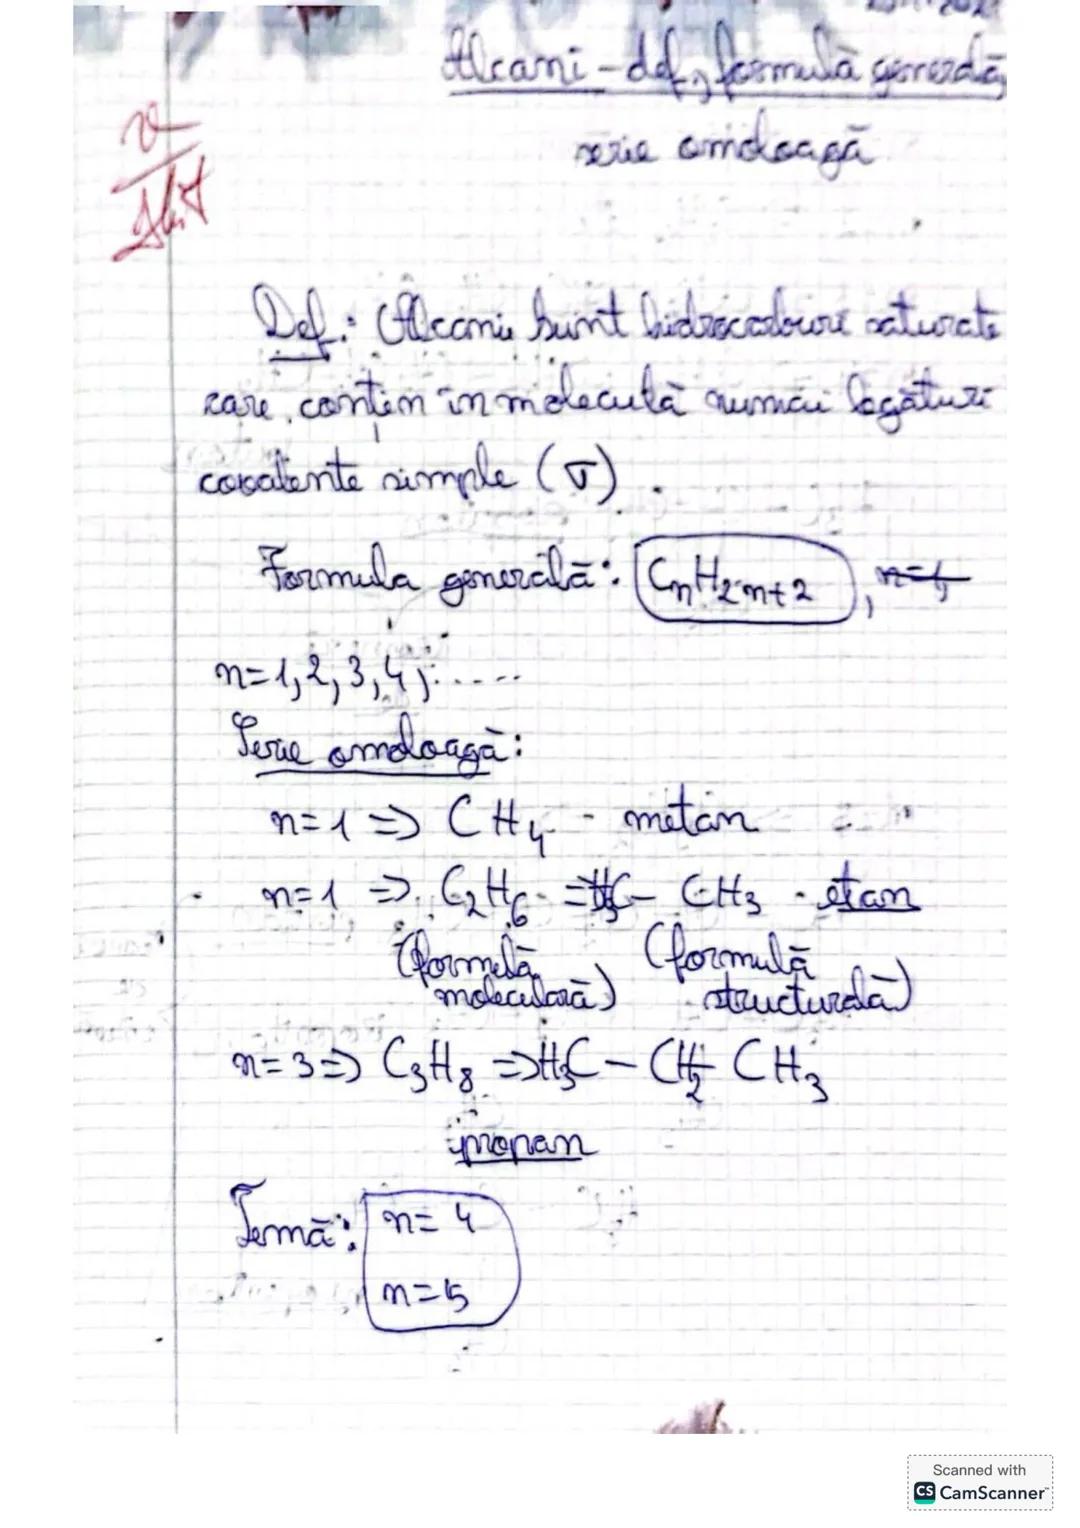 Alcani - def, formulă generală,
serie omoloagă
Def.: Alcanii sunt hidrocarburi saturate
care conțin în moleculă numai legături
covalente simple (σ).
Formula generală: CnH2n+2, n=1,
n=1,2,3,4,.....
Serie omoloagă:
n=1 => CH4 - metan
n=1 => C2H6 = H3C - CH3 - etan
(formulă moleculară) (formulă structurală)
n=3=> C3H8 => H3C - CH2 - CH3
propan
Temă: n=4
n=5
Scanned with
CS CamScanner